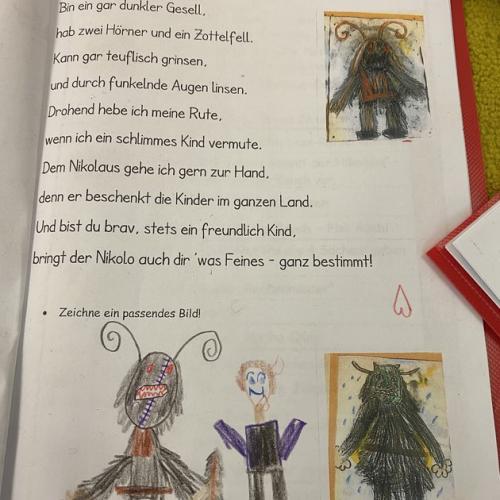 Bin ein gar dunkler Gesell,
hab zwei Hörner und ein Zottelfell.
Kann gar teuflisch grinsen,
und durch funkelnde Augen linsen.
Drohend hebe ich meine Rute,
wenn ich ein schlimmes Kind vermute.
Dem Nikolaus gehe ich gern zur Hand,
denn er beschenkt die Kinder im ganzen Land.
Und bist du brav, stets ein freundlich Kind,
bringt der Nikolo auch dir 'was Feines - ganz bestimmt!
• Zeichne ein passendes Bild!